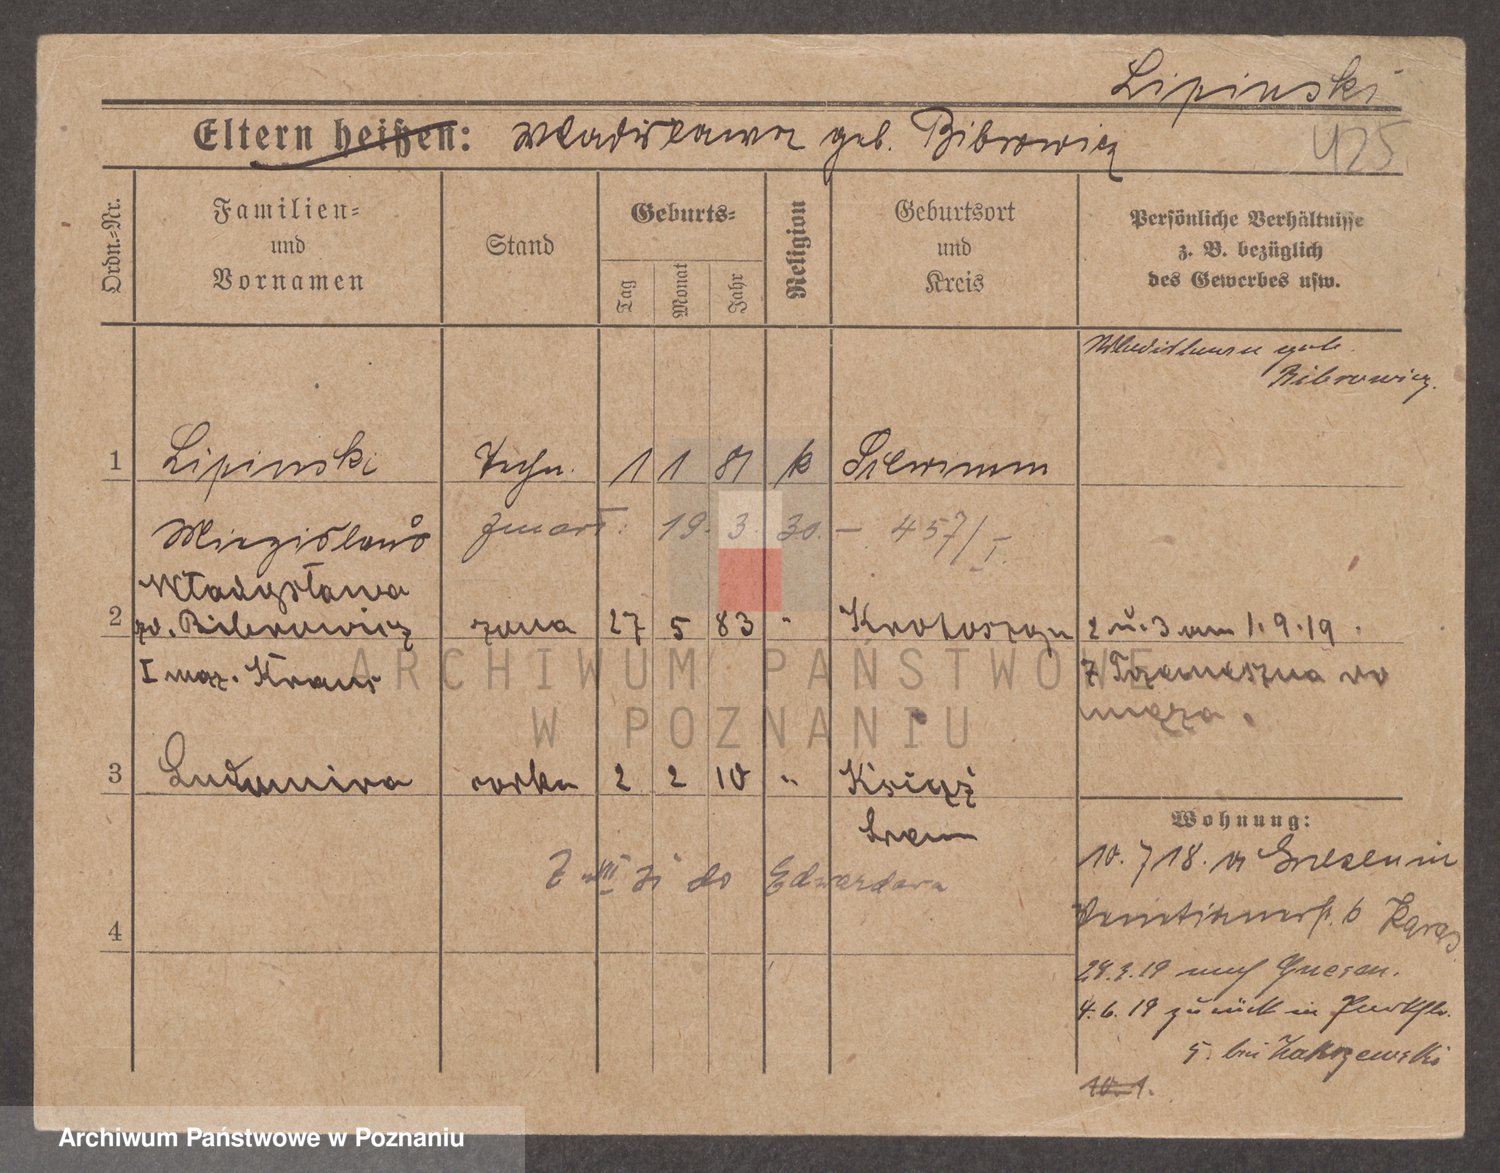 Lipinski
Eltern heißen: Wladislawa geb. Bibrowicz
425
Ordn.-Nr.
Familien-
und
Vornamen
Stand
Geburts-
Tag
Monat
Jahr
Religion
Geburtsort
und
Kreis
Persönliche Verhältnisse
z. B. bezüglich
des Gewerbes usw.
Wladislawa geb.
Bibrowicz.
1 Lipinski Techn. 1 1 81 k
Miezislaus zmarł: 19. 3. 30. – 457/I.
Władysława
2 zd. Bibrowicz żona 27 5 83 " Krotoszyn 2 u. 3 am 1.9.19.
I mąż. Kraus
z Trzemeszna do
męża.
3 Ludomira córka 2 2 10 " Książ
Śrem
Wohnung:
10.7.18. a Gnesen in
Venetianerstr. 6
Z VII 31 do Edwardowa
4
nach Gnesen.
4.6.19 zurück in
5. bei Zakrzewski
10.1.
ARCHIWUM PAŃSTWOWE
W POZNANIU
Archiwum Państwowe w Poznaniu